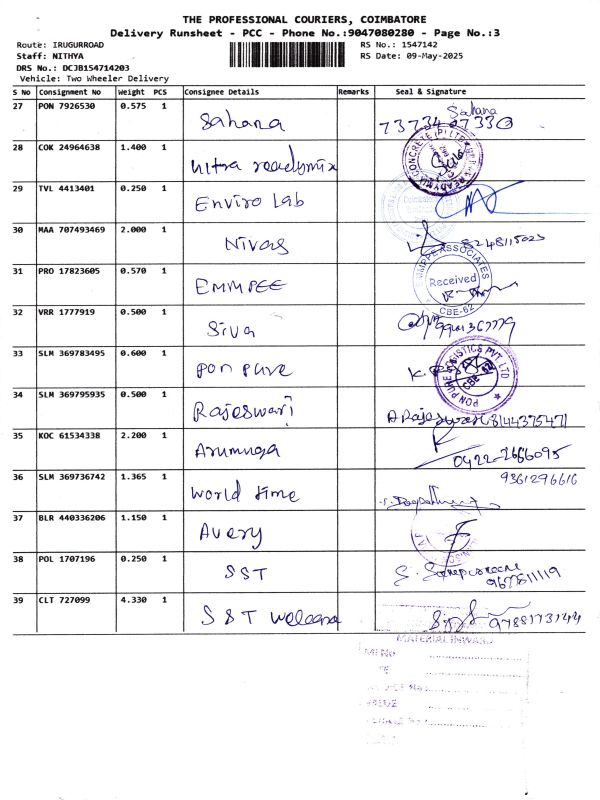 THE PROFESSIONAL COURIERS, COIMBATORE
Delivery Runsheet - PCC - Phone No.:9047080280 - Page No.:3
Route: IRUGURROAD RS No.: 1547142
Staff: NITHYA RS Date: 09-May-2025
DRS No.: DCJB154714203
Vehicle: Two Wheeler Delivery
S No Consignment No Weight PCS Consignee Details Remarks Seal & Signature
27 PON 7926530 0.575 1 Sahana Sahana
28 COK 24964638 1.400 1 Ultra readymix
29 TVL 4413401 0.250 1 Enviro Lab
30 MAA 707493469 2.000 1 Nivas 8248115023
31 PRO 17823605 0.570 1 EMMPEE EMMPPE ASSOCIATES Received CBE-62
32 VRR 1777919 0.500 1 Siva
33 SLM 369783495 0.600 1 pon pure PON PURE LOGISTICS PVT. LTD CBE 62
34 SLM 369795935 0.500 1 Rajeswari
35 KOC 61534338 2.200 1 Arumuga 0422-2666095
36 SLM 369736742 1.365 1 World time 9361296616
37 BLR 440336206 1.150 1 Avery
38 POL 1707196 0.250 1 SST 9677811119
39 CLT 727099 4.330 1 SST 9788173744
MATERIAL INWARD